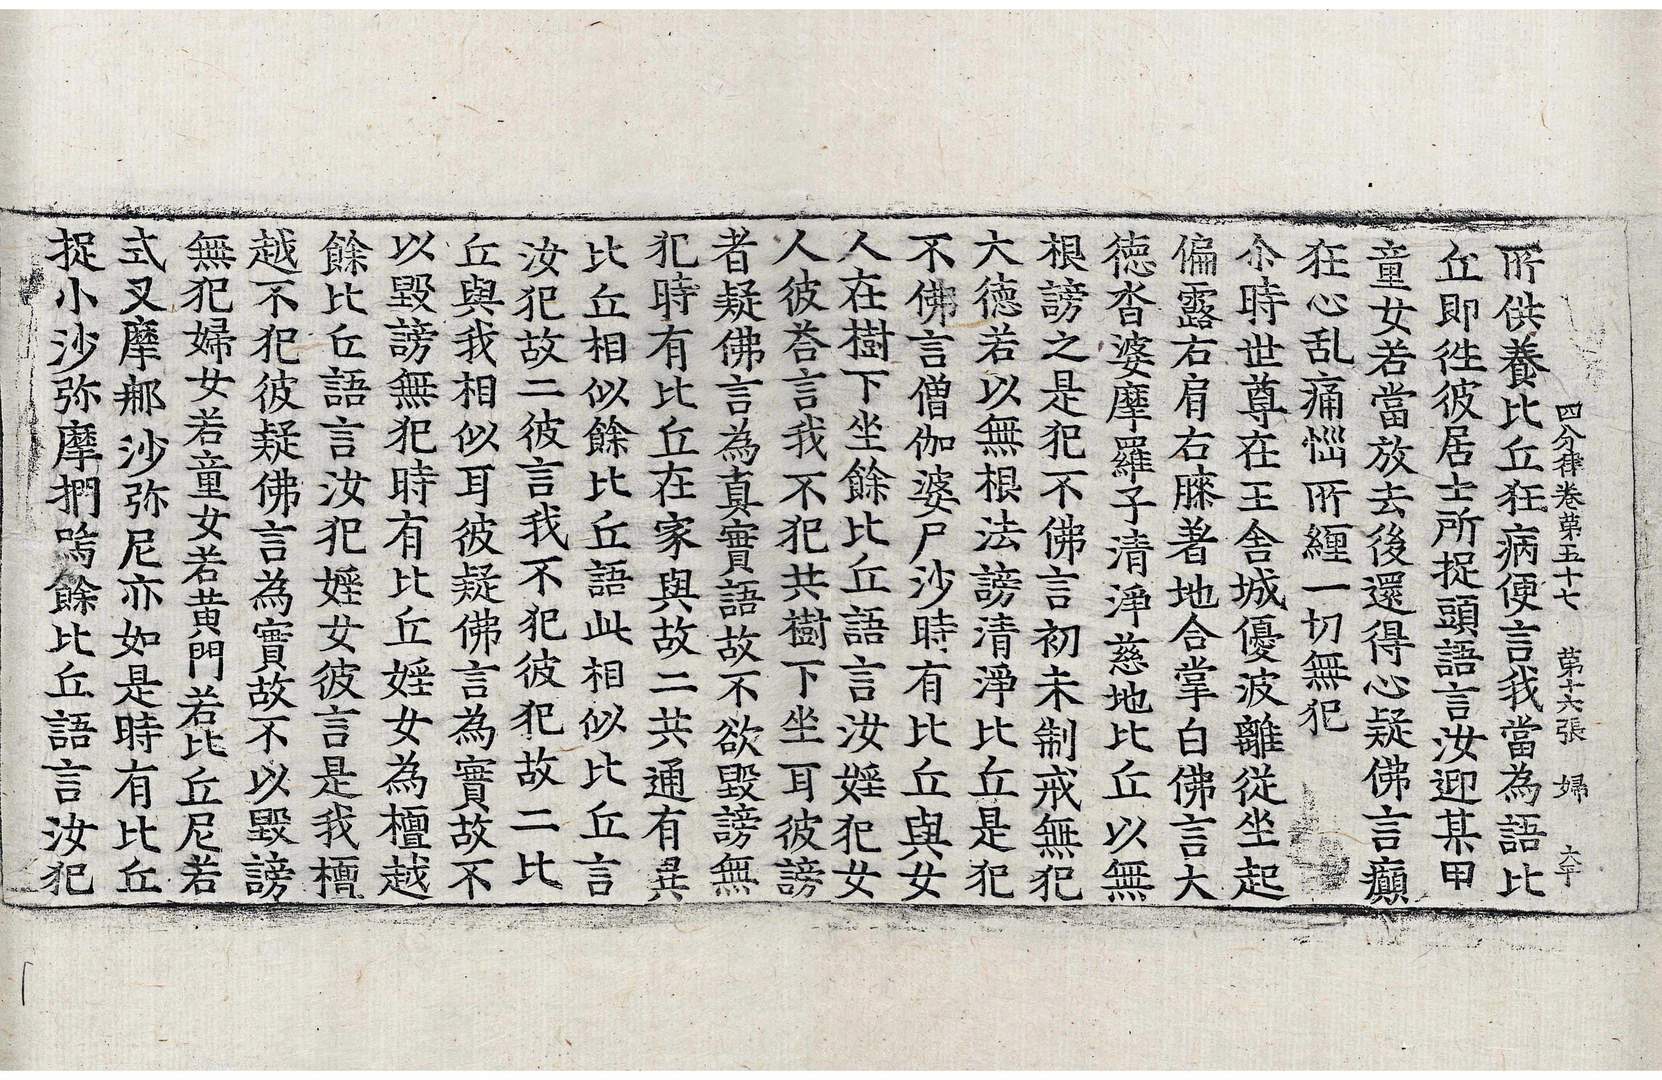 四分律卷苐五十七　苐十六張　婦
所供養比丘狂病便言我當為語比
丘即徃彼居士所捉頭語言汝迎某甲
童女若當放去後還得心疑佛言癲
狂心乱痛惱所纒一切無犯
尒時世尊在王舍城優波離從坐起
偏露右肩右膝著地合掌白佛言大
德沓婆摩羅子清淨慈地比丘以無
根謗之是犯不佛言初未制戒無犯
大德若以無根法謗清淨比丘是犯
不佛言僧伽婆尸沙時有比丘與女
人在樹下坐餘比丘語言汝婬犯女
人彼荅言我不犯共樹下坐耳彼謗
者疑佛言為真實語故不欲毀謗無
犯時有比丘在家與故二共通有異
比丘相似餘比丘語此相似比丘言
汝犯故二彼言我不犯彼犯故二比
丘與我相似耳彼疑佛言為實故不
以毀謗無犯時有比丘婬女為檀越
餘比丘語言汝犯婬女彼言是我檀
越不犯彼疑佛言為實故不以毀謗
無犯婦女若童女若黄門若比丘尼若
式叉摩那沙弥尼亦如是時有比丘
捉小沙弥摩捫嗚餘比丘語言汝犯